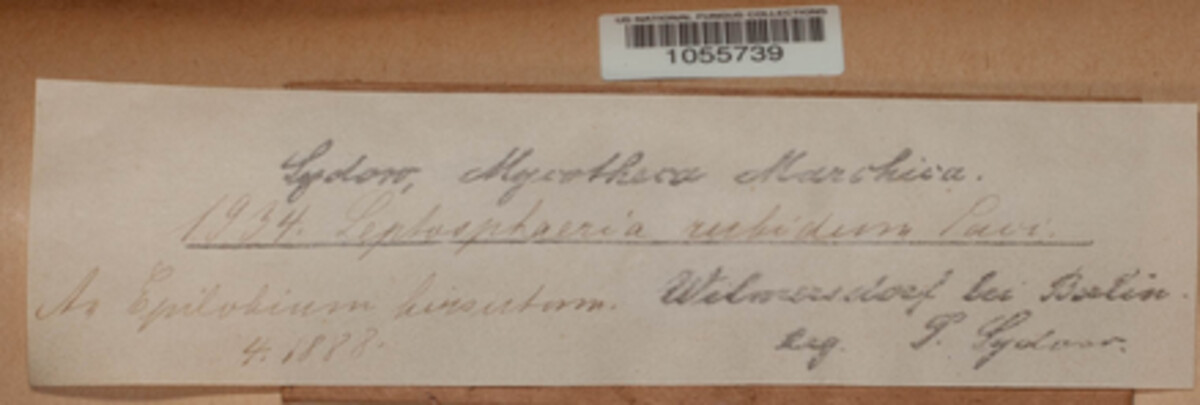 US NATIONAL FUNGUS COLLECTIONS
1055739
Sydow, Mycotheca Marchica.
1934. Leptosphaeria rubidum
An Epilobium hirsutum. Wilmersdorf bei Berlin.
4. 1888. leg. P. Sydow.